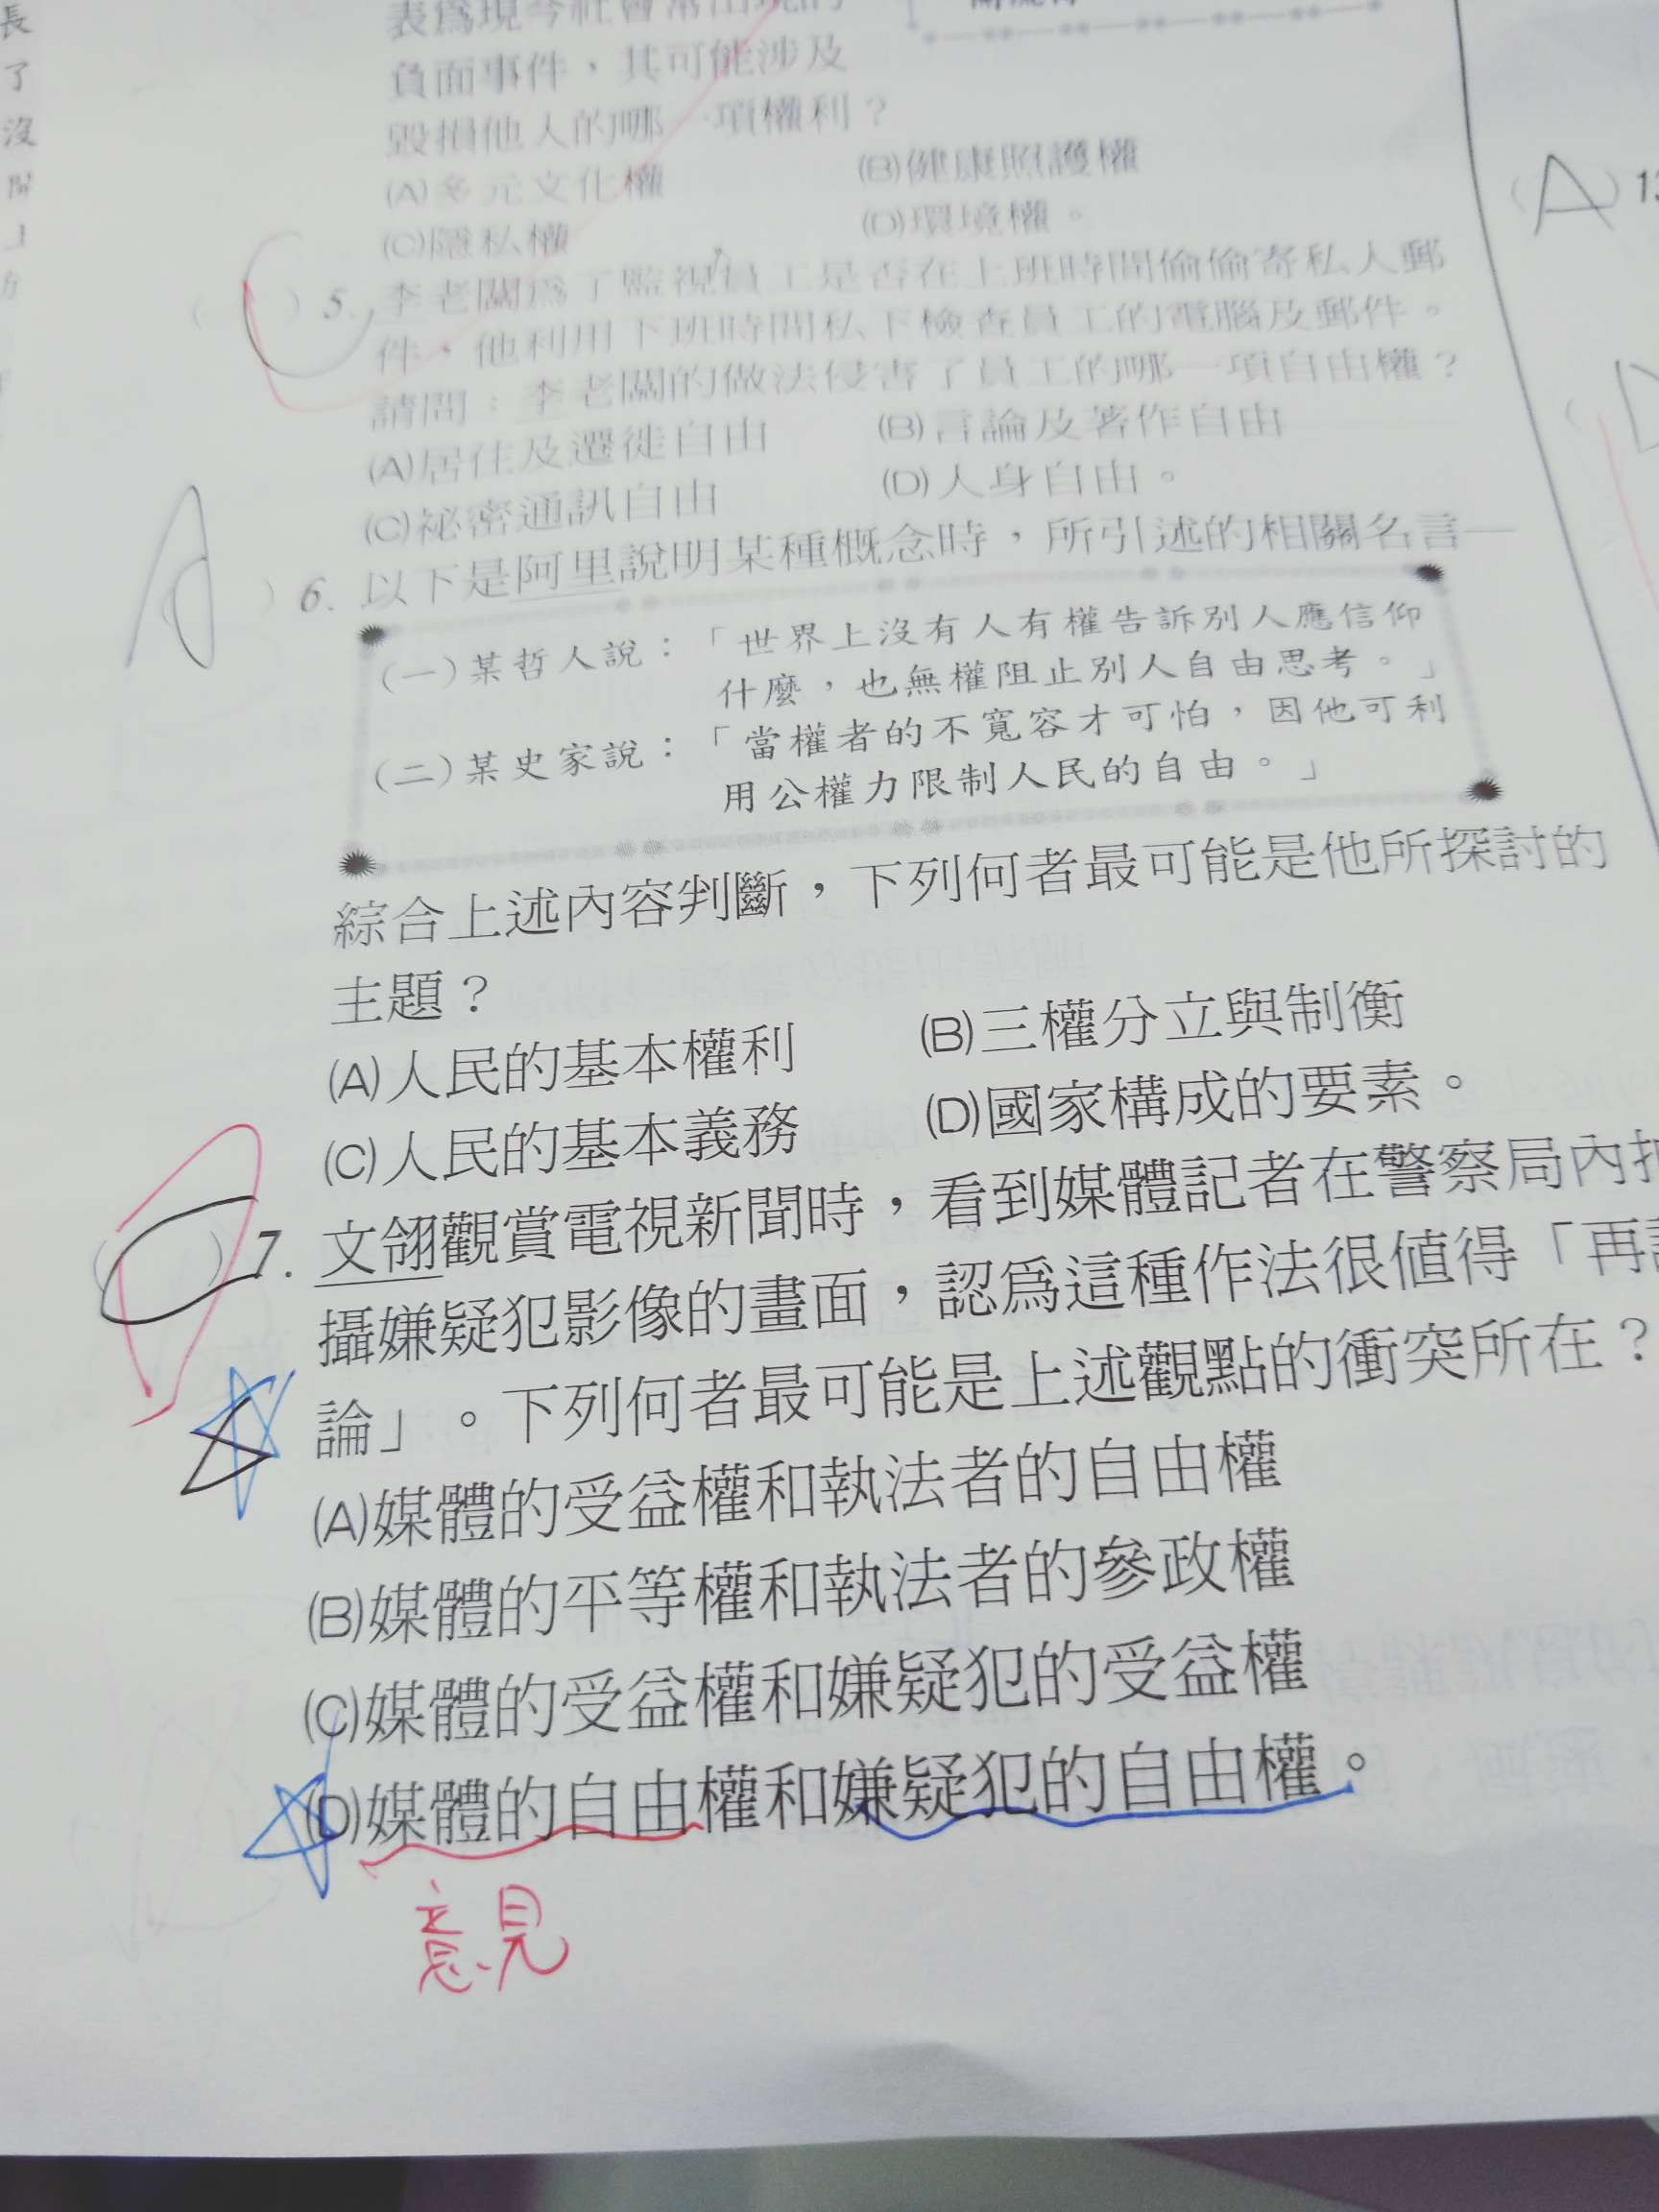 長
了
沒
表為現今社會常出現的
負面事件，其可能涉及
毀損他人的哪一項權利？
(A)多元文化權 (B)健康照護權
(C)隱私權 (D)環境權。
( C ) 5. 李老闆為了監視員工是否在上班時間偷偷寄私人郵
件，他利用下班時間私下檢查員工的電腦及郵件。
請問：李老闆的做法侵害了員工的哪一項自由權？
(A)居住及遷徙自由 (B)言論及著作自由
(C)祕密通訊自由 (D)人身自由。
A ) 6. 以下是阿里說明某種概念時，所引述的相關名言—
(一)某哲人說：「世界上沒有人有權告訴別人應信仰
什麼，也無權阻止別人自由思考。」
(二)某史家說：「當權者的不寬容才可怕，因他可利
用公權力限制人民的自由。」
綜合上述內容判斷，下列何者最可能是他所探討的
主題？
(A)人民的基本權利 (B)三權分立與制衡
(C)人民的基本義務 (D)國家構成的要素。
( ) 7. 文翎觀賞電視新聞時，看到媒體記者在警察局內拍
攝嫌疑犯影像的畫面，認為這種作法很值得「再討
論」。下列何者最可能是上述觀點的衝突所在？
(A)媒體的受益權和執法者的自由權
(B)媒體的平等權和執法者的參政權
(C)媒體的受益權和嫌疑犯的受益權
(D)媒體的自由權和嫌疑犯的自由權。
意見
(A) 13
D